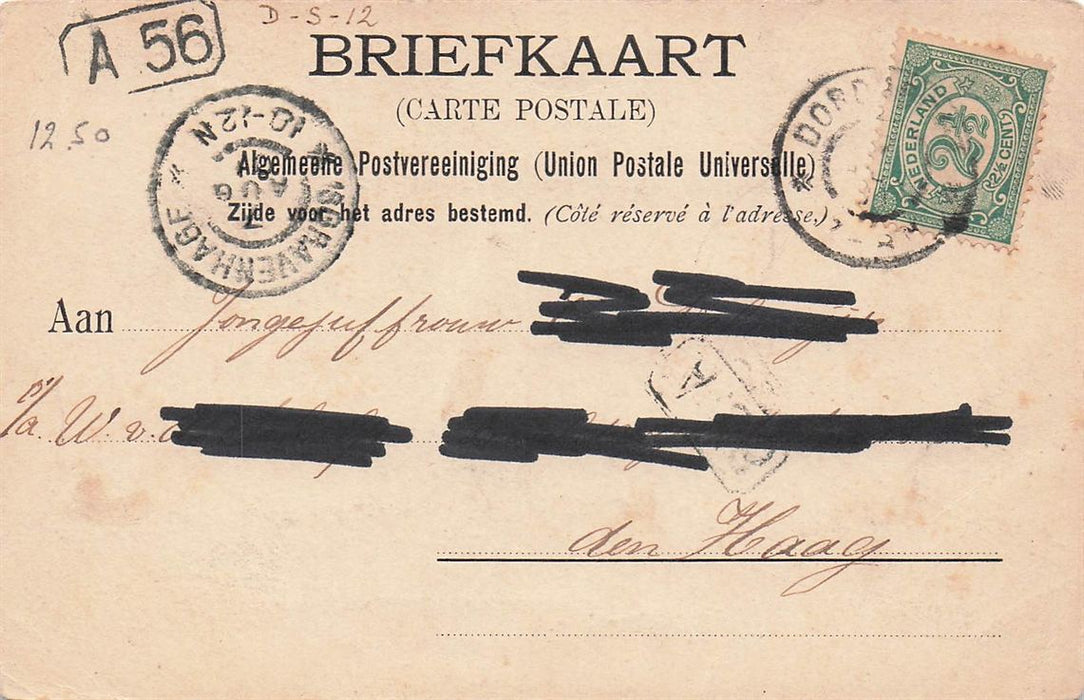 D-S-12
A 56
BRIEFKAART
(CARTE POSTALE)
12.50
Algemeene Postvereeiniging (Union Postale Universelle)
Zijde voor het adres bestemd. (Côté réservé à l'adresse.)
'SGRAVENHAGE
10-12N
7
AUG
DORD
NEDERLAND
2½
(2½ CENT)
Aan Jongejuffrouw
p/a. W. v. d.
A
den Haag